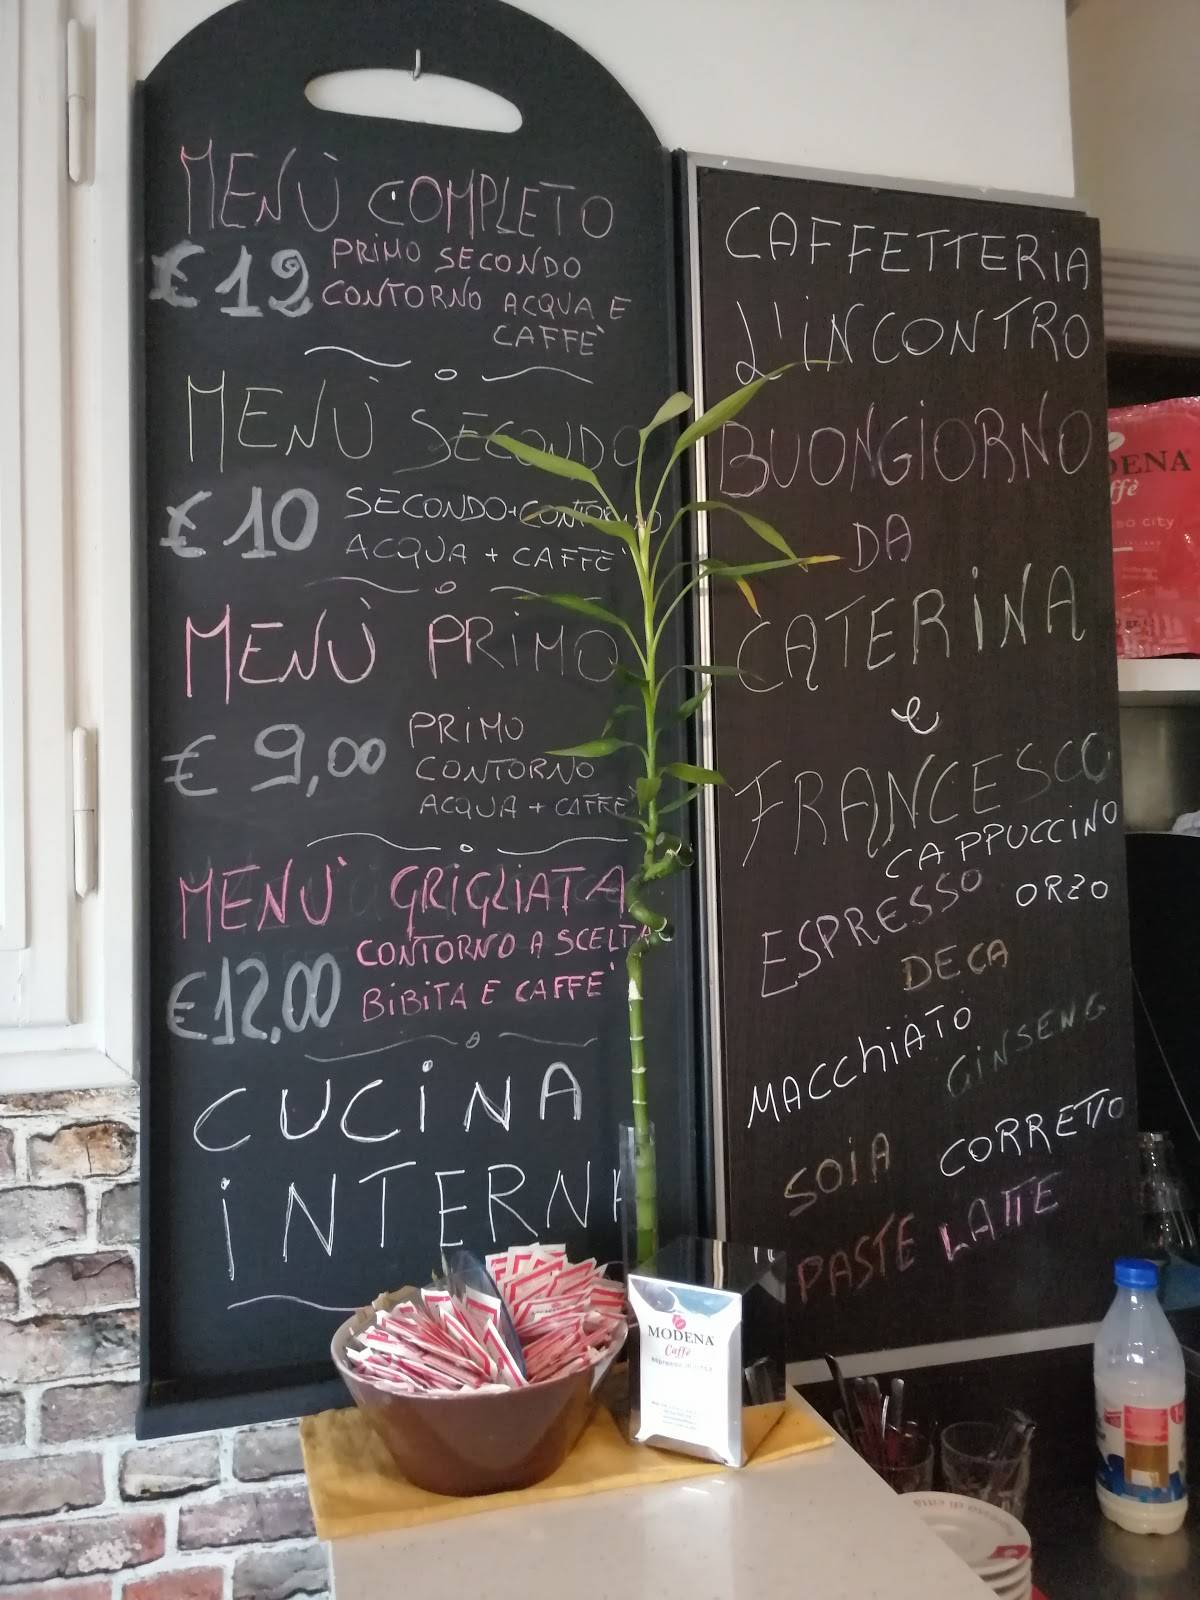 MENÙ COMPLETO
€ 12 PRIMO SECONDO
CONTORNO ACQUA E
CAFFÈ
MENÙ SECONDO
€ 10 SECONDO + CONTORNO
ACQUA + CAFFÈ
MENÙ PRIMO
€ 9,00 PRIMO
CONTORNO
ACQUA + CAFFÈ
MENÙ GRIGLIATA
€ 12,00 CONTORNO A SCELTA
BIBITA E CAFFÈ
CUCINA
INTERNA
CAFFETTERIA
L'INCONTRO
BUONGIORNO
DA
CATERINA
e
FRANCESCO
CAPPUCCINO
ESPRESSO ORZO
DECA
MACChiATO
GINSENG
SOIA CORRETTO
PASTE LATTE
MODENA
Caffè
MODENA
city